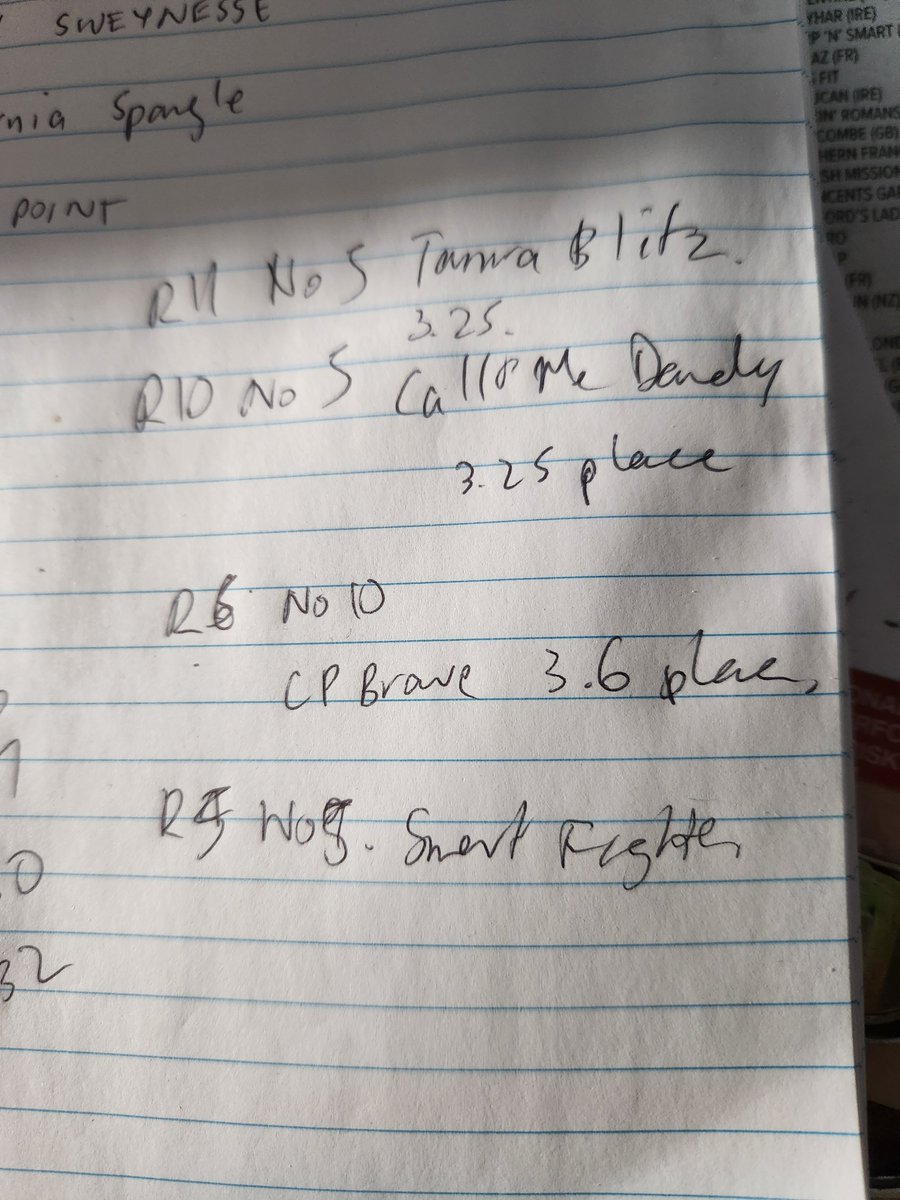 SWEYNESSE
nia Spangle
POINT
R11 No 5 Tamra Blitz.
3.25.
R10 No 5 Call Me Dandy
3.25 place
R6 No 10
CP Brave 3.6 place,
R5 No 5. Smart Fighter
0
32
YHAR (IRE)
P 'N' SMART (
AZ (FR)
FIT
ICAN (IRE)
IN' ROMANS
COMBE (GB)
HERN FRAN
SH MISSION
ICENTS GA
ORD'S LAD
RO
P
(FR)
IN (NZ)
ONE